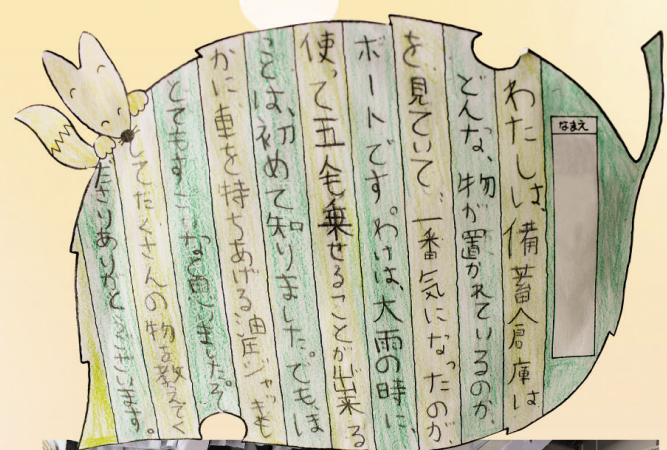 なまえ
わたしは、備蓄倉庫は
どんな、物が置かれているのか、
を見ていて、一番気になったのが、
ボートです。わけは、大雨の時に、
使って五人も乗せることが出来る
とは、初めて知りました。でもほ
かに車を持ちあげる油圧ジャッキも
とてもす
してたくさんの物を教えてく
ださりありがとうございます。